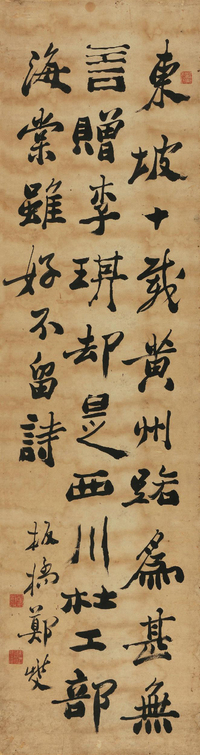 東坡十載黃州路為甚無
言贈李琪却是西川杜工部
海棠雖好不留詩
板橋鄭燮